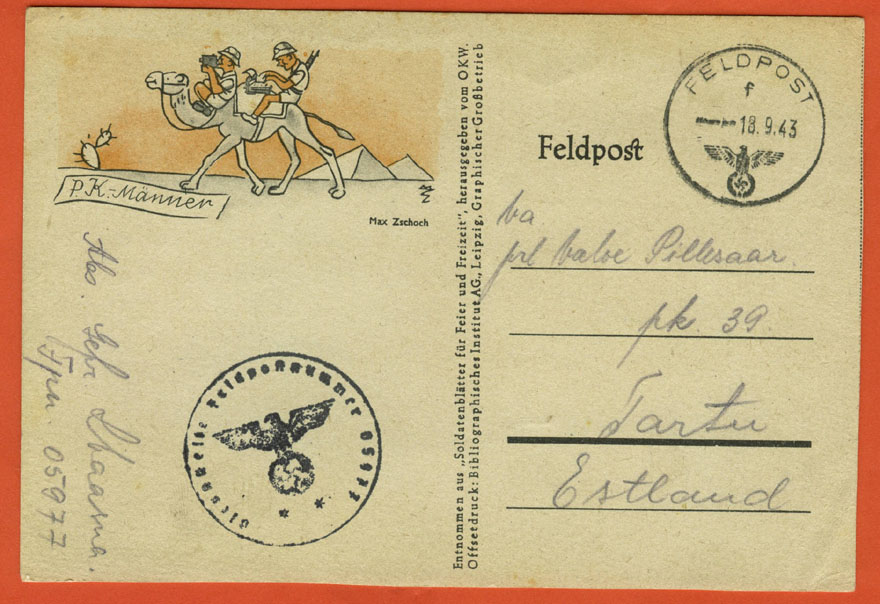 P.K.-Männer
Max Zschoch
Abs. Gefr.
Fpn 05977
Dienststelle Feldpostnummer 05977
Entnommen aus „Soldatenblätter für Feier und Freizeit", herausgegeben vom OKW.
Offsetdruck: Bibliographisches Institut AG., Leipzig, Graphischer Großbetrieb
FELDPOST
f
18.9.43
Feldpost
prl Valve Pillesaar.
pk. 39.
Tartu
Estland